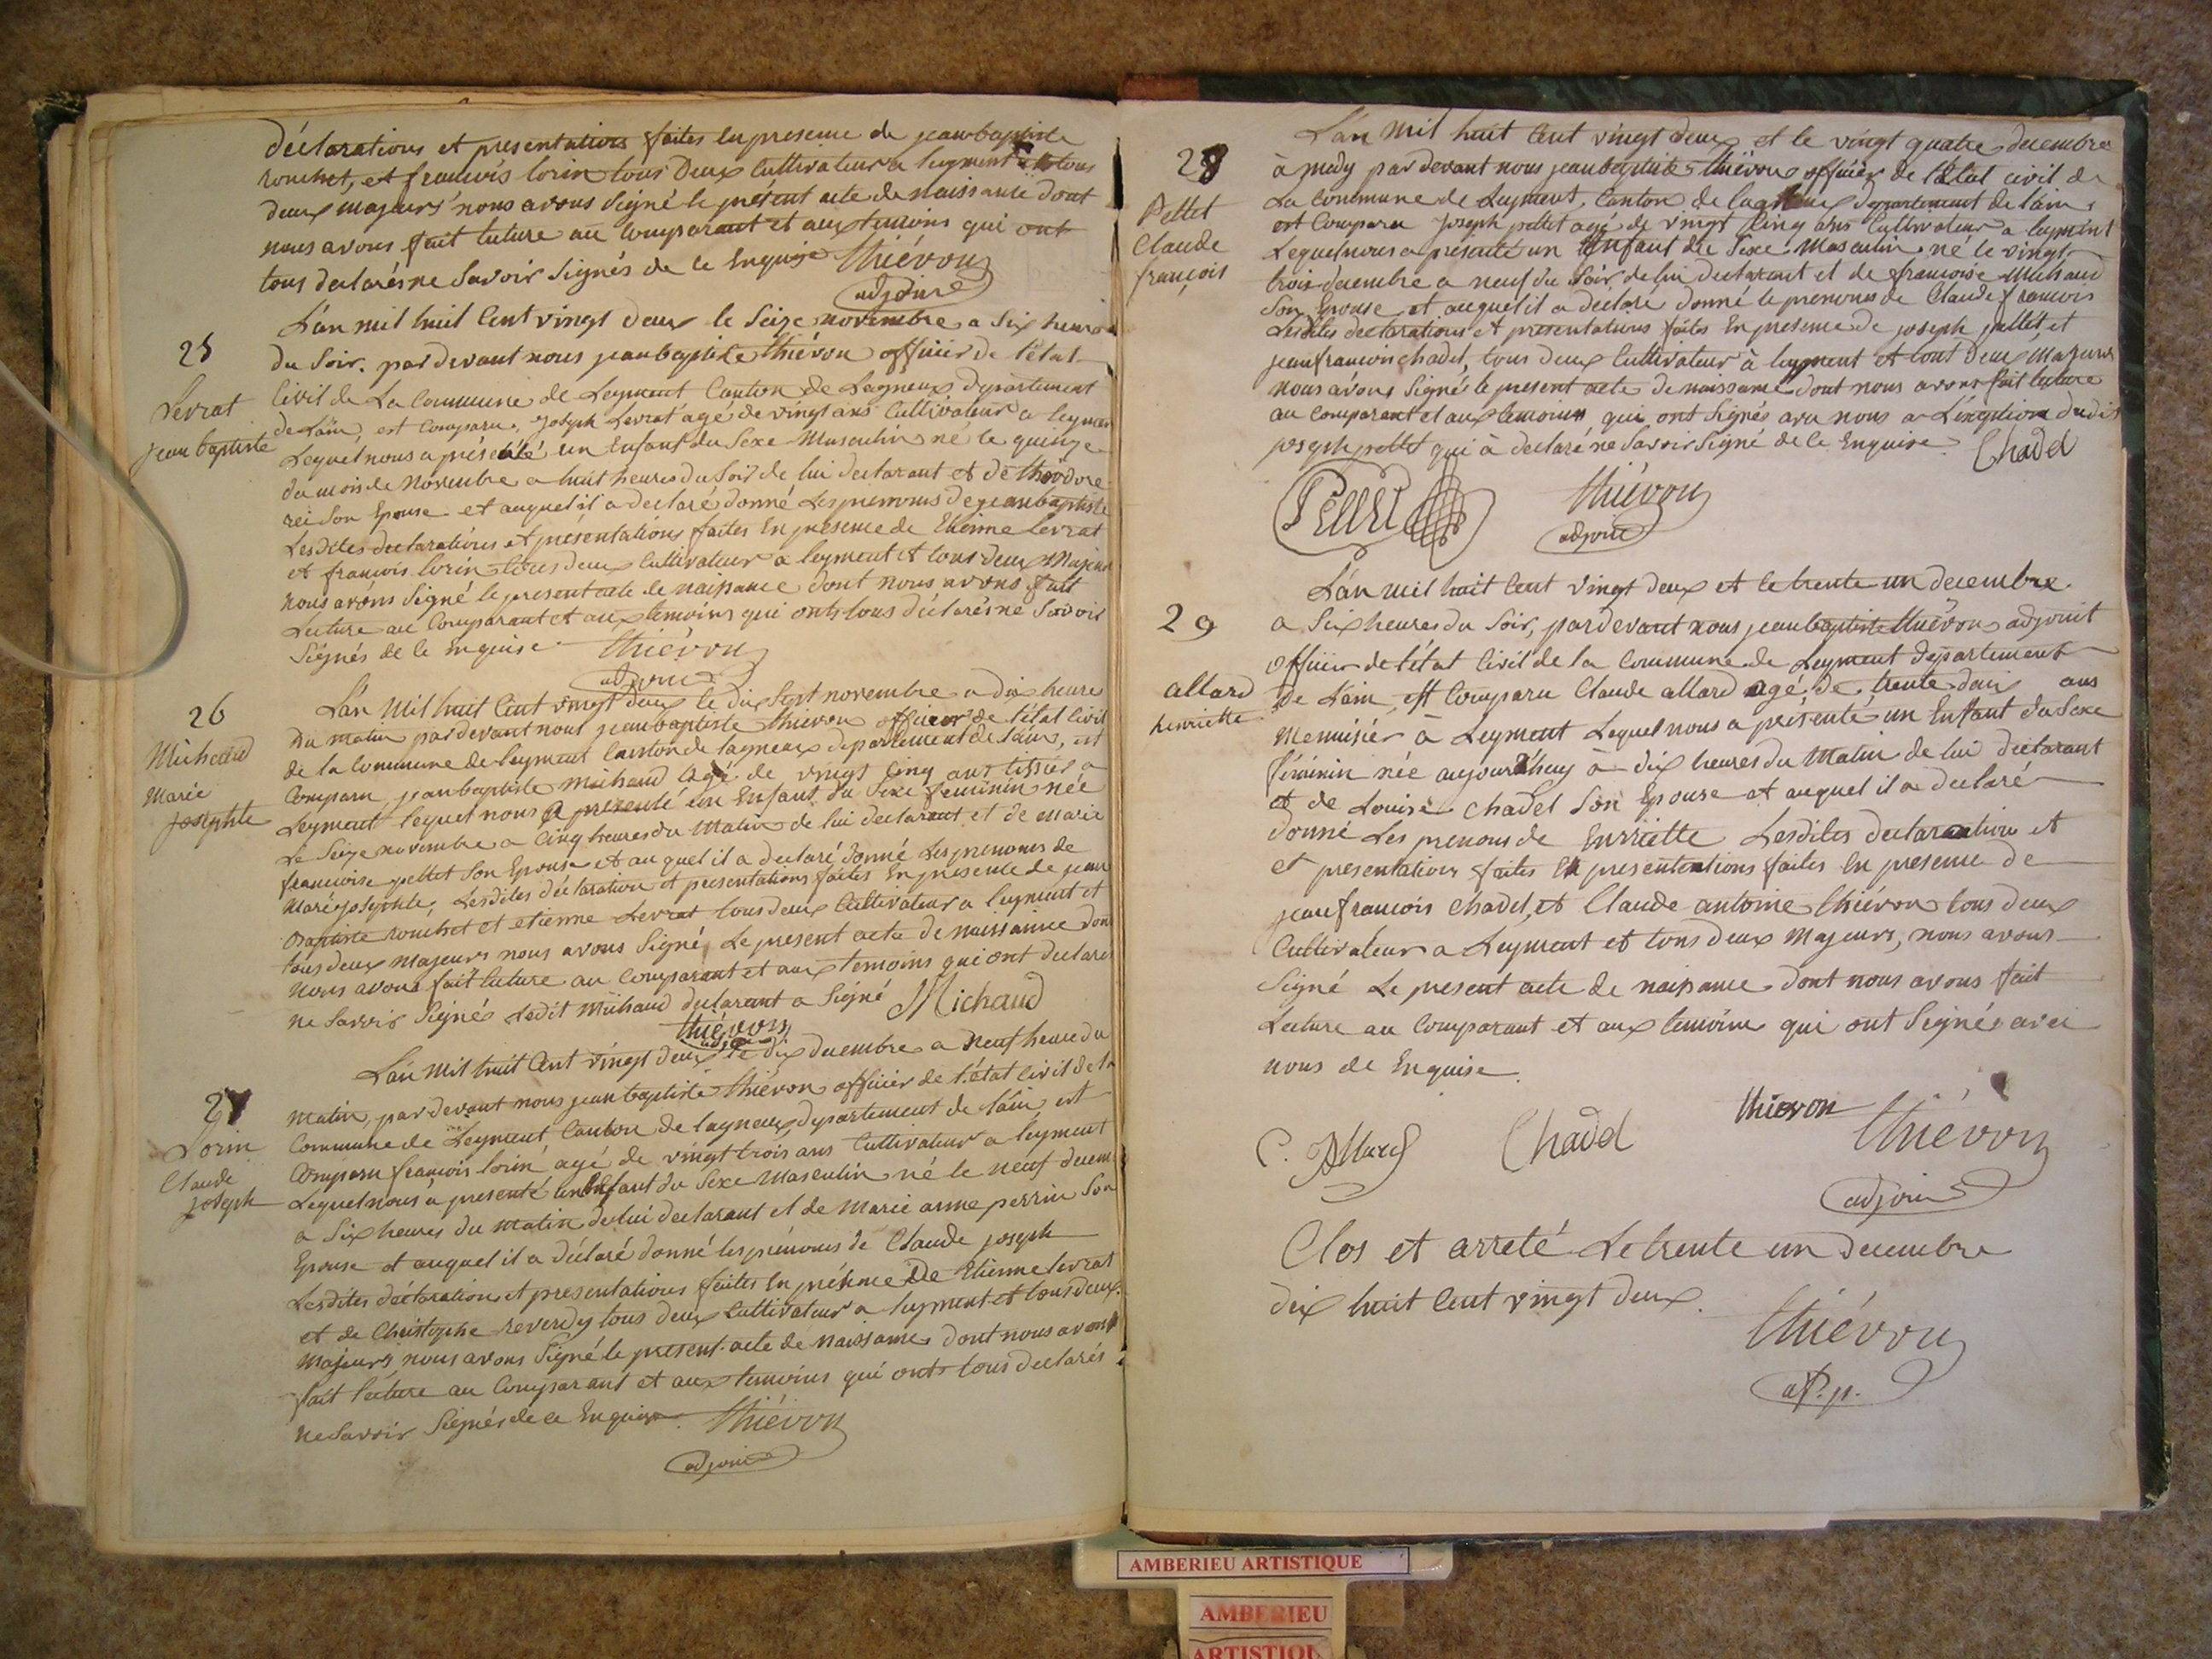 déclarations et presentations faites en presence de jean baptiste
rouchet, et francois lorin tous deux Cultivateur a leyment et tous
deux majeurs nous avons Signé le présent acte de naissance dont
nous avons fait lecture au comparant et aux temoins qui ont
tous declarés ne Savoir Signés de ce Enquise Thiévon
adjoint
25
Levrat
jean baptiste
L'an mil huit Cent vingt deux le Seize novembre a Six heures
du Soir. par devant nous jean baptiste thiévon officier de l'état
Civil de La Commune de Leyment Canton de Lagneux departement
de L'ain, est Comparu, Joseph Levrat agé de vingt ans Cultivateur a leyment
Lequel nous a présenté un Enfant du Sexe Masculin né le quinze
du mois de Novembre a huit heures du Soir de lui declarant et de théodore
rei Son Epouse et auquel il a declaré donné Les prenoms de jean baptiste
Lesdites declarations et présentations faites En présence de Etienne levrat
et francois lorin tous deux Cultivateur a leyment et tous deux Majeurs
nous avons Signé le present acte de naissance dont nous avons fait
Lecture au Comparant et aux temoins qui onts tous déclarés ne Savoir
Signés de ce enquise Thiévon
adjoint
26
Michaud
Marie
josephte
L'an Mil huit Cent vingt deux le dix Sept novembre a dix heure
du matin par devant nous jean baptiste thievon officier de l'état Civil
de la Commune de leyment Canton de lagneux departement de l'ain, est
Comparu jean baptiste michaud agé de vingt Cinq ans tissier a
Leyment lequel nous a presenté un Enfant du Sexe feminin née
Le Seize novembre a Cinq heures du Matin de lui declarant et de marie
francoise pettet Son Epouse et au quel il a declaré donné Les prenoms de
Marie josephte, Lesdites déclaration et presentations faites En presence de jean
Baptiste rouchet et etienne Levrat tous deux Cultivateur a leyment et
tous deux majeurs nous avons Signé Le present acte de naissance dont
Nous avons fait lecture au Comparant et aux temoins qui ont declarés
ne Savoir Signés Ledit Michaud declarant a Signé Michaud
thiévon
adjoint
27
Lorin
Claude
joseph
L'an Mil huit Cent vingt deux le dix decembre a Neuf heure du
Matin, par devant nous jean baptiste thiévon officier de l'état civil de la
Commune de Leyment Canton de lagneux departement de l'ain est
Comparu francois lorin agé de vingt trois ans Cultivateur a leyment
Lequel nous a presenté un Enfant du Sexe Masculin né le neuf decem
a Six heures du matin de lui declarant et de Marie anne perrin Son
Epouse et auquel il a déclaré donné les prénoms de Claude joseph
Lesdites déclarations et presentations faites En présence De Etienne levrat
et de Christophe reverdy tous deux Cultivateur a leyment et tous deux
majeurs nous avons Signé le present acte de naissance dont nous avons
fait lecture au Comparant et aux temoins qui onts tous declarés
ne Savoir Signés de ce Enquise. Thiévon
adjoint
28
Pettet
Claude
françois
L'an Mil huit Cent vingt deux et le vingt quatre decembre
à medy par devant nous jean baptiste thiévon officier de l'état civil de
La Commune de Leyment, Canton de lagneux departement de l'ain,
est Comparu Joseph pettet agé de vingt Cinq ans Cultivateur a leyment
Lequel nous a présenté un Enfant du Sexe Masculin né le vingt
trois decembre a neuf du Soir de lui declarant et de francoise Michaud
Son Epouse et auquel il a declaré donné le prenoms de Claude francois
Lesdites declarations et presentations faites En presence de joseph pettet et
jean francois chadel, tous deux Cultivateur à leyment et tous deux Majeurs
nous avons Signé le present acte de naissance dont nous avons fait lecture
au Comparant et aux temoins qui ont Signés avec nous a L'éxeption dudit
joseph pettet qui à declaré ne Savoir Signé de ce Enquise. Chadel
Pettet Thiévon
adjoint
29
allard
henriette
L'an mil huit Cent vingt deux et le trente un decembre
a Six heures du Soir, par devant nous jean baptiste thiévon adjoint
officier de l'état Civil de la Commune de Leyment departement
de L'ain, est Comparu Claude allard agé de trente deux ans
Menuisier à Leyment Lequel nous a présenté un Enfant du Sexe
féminin née aujourd'huy à dix heures du Matin de lui declarant
et de Louise chadel Son Epouse et auquel il a declaré
donné Les prenoms de Enrriette Lesdites declaration et
et presentations faites En presentations faites En presence de
jean francois chadel, et Claude antoine thiévon tous deux
Cultivateur a Leyment et tous deux majeurs, nous avons
Signé Le present acte de naissance dont nous avons fait
Lecture au Comparant et aux temoins qui ont Signés avec
nous de Enquise.
C. Allard Chadel thievon Thiévon
adjoint
Clos et arreté Le trente un decembre
dix huit Cent vingt deux.
Thiévon
adj.
AMBERIEU ARTISTIQUE
AMBERIEU
ARTISTIQU